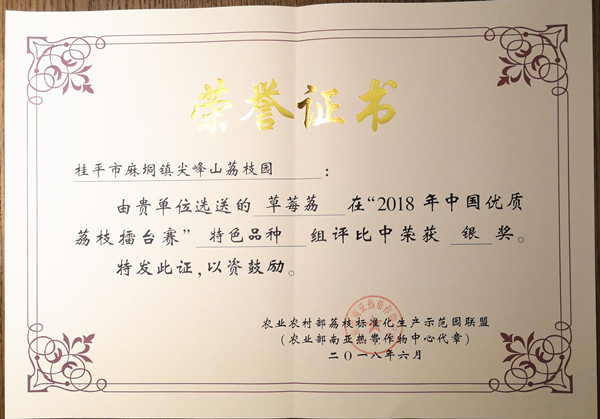 荣誉证书
桂平市麻垌镇尖峰山荔枝园：
由贵单位选送的 草莓荔 在“2018 年中国优质
荔枝擂台赛” 特色品种 组评比中荣获 银 奖。
特发此证，以资鼓励。
农业农村部荔枝标准化生产示范园联盟
（农业部南亚热带作物中心代章）
二〇一八年六月